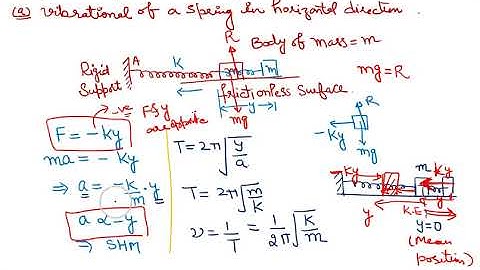 (a) Vibrational of a spring in horizontal direction.
R
Body of mass = m
A
K
m
m
mg = R
Rigid
Support
frictionless surface.
y
mg
-ve
F & y
are opposite
F = -ky
R
-Ky
mg
ma = -ky
T = 2π√(y/a)
⇒ a = -k/m . y
T = 2π√(m/k)
a ∝ -y
⇒ SHM
ν = 1/T = 1/2π √(K/m)
Ky
m
Ky
y
y
K.E
y=0
(Mean
position)